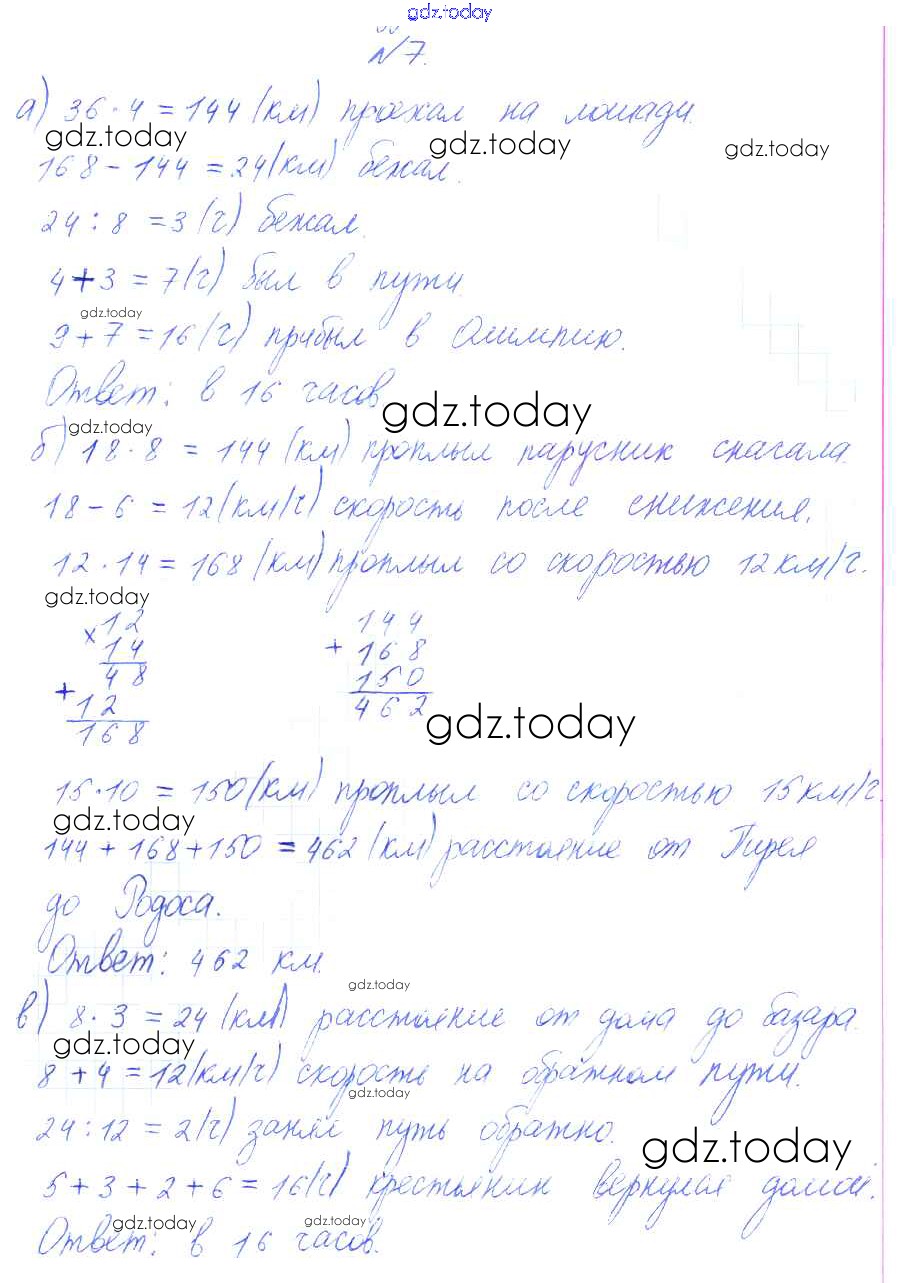 gdz.today
№7.
а) 36·4=144(км) проехал на лошади.
gdz.today gdz.today gdz.today
168-144=24(км) бежал.
24:8=3(ч) бежал.
4+3=7(ч) был в пути.
gdz.today
9+7=16(ч) прибыл в Олимпию.
Ответ: в 16 часов
gdz.today
gdz.today
б) 18·8=144(км) проплыл парусник сначала.
18-6=12(км/ч) скорость после снижения.
12·14=168(км) проплыл со скоростью 12км/ч.
gdz.today
×12 144
14 +168
48 150
+12 462
168
gdz.today
15·10=150(км) проплыл со скоростью 15км/ч.
gdz.today
144+168+150=462(км) расстояние от Пирея
до Родоса.
Ответ: 462 км.
gdz.today
в) 8·3=24(км) расстояние от дома до базара.
gdz.today
8+4=12(км/ч) скорость на обратном пути.
gdz.today
24:12=2(ч) занял путь обратно.
gdz.today
5+3+2+6=16(ч) крестьянин вернулся домой.
gdz.today gdz.today
Ответ: в 16 часов.